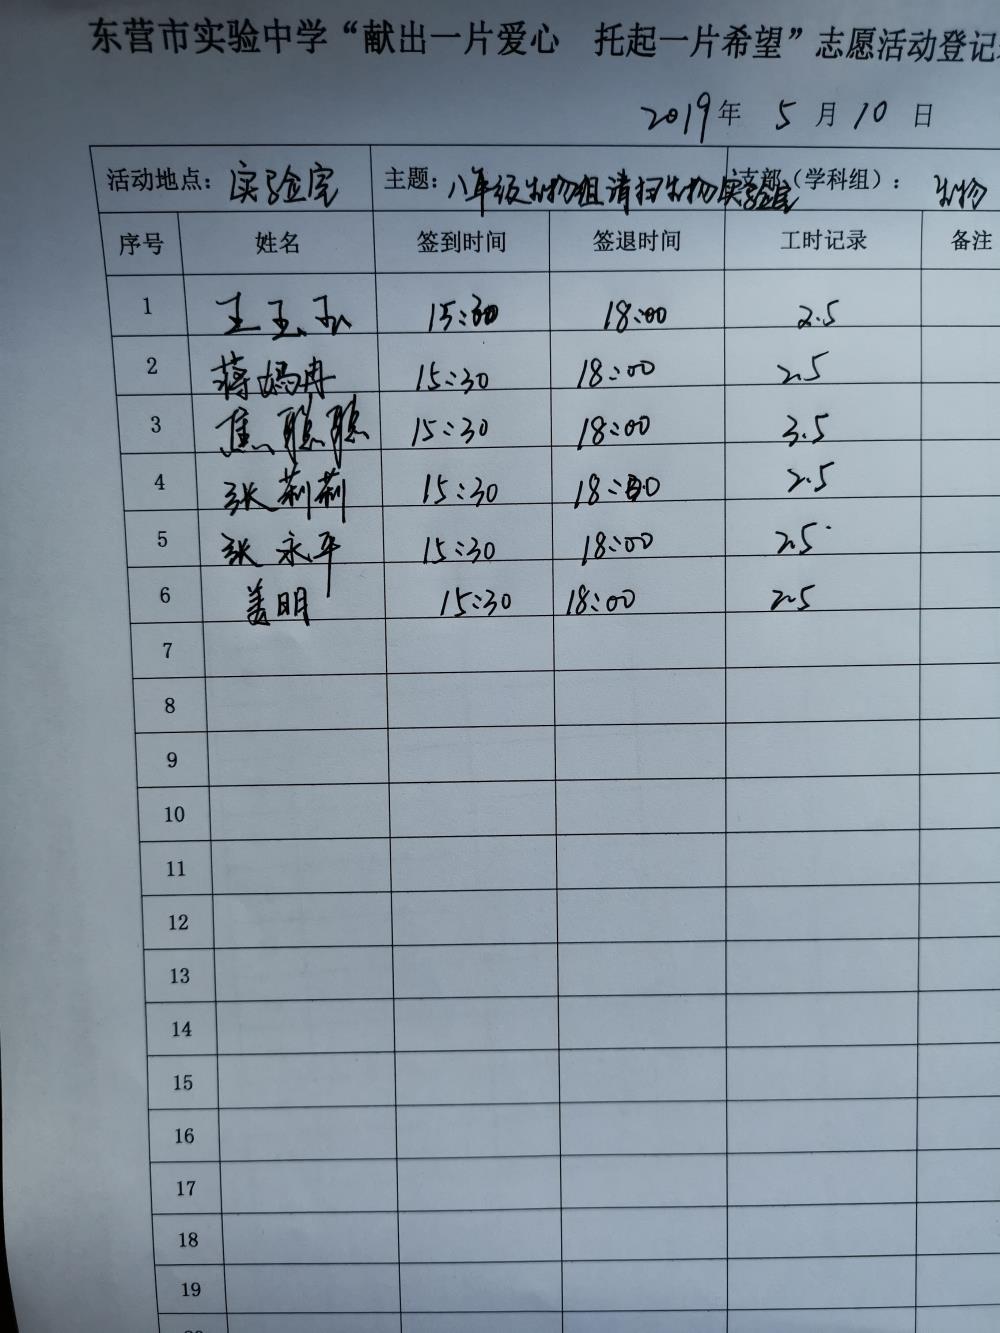 东营市实验中学“献出一片爱心 托起一片希望”志愿活动登记
2019年 5 月 10 日
活动地点：实验室 主题：八年级生物组清扫生物实验室 支部（学科组）：生物
序号 姓名 签到时间 签退时间 工时记录 备注
1 王玉玉 15:30 18:00 2.5
2 蒋嫣冉 15:30 18:00 2.5
3 焦聪聪 15:30 18:00 3.5
4 张莉莉 15:30 18:00 2.5
5 张永平 15:30 18:00 2.5
6 姜明 15:30 18:00 2.5
7
8
9
10
11
12
13
14
15
16
17
18
19